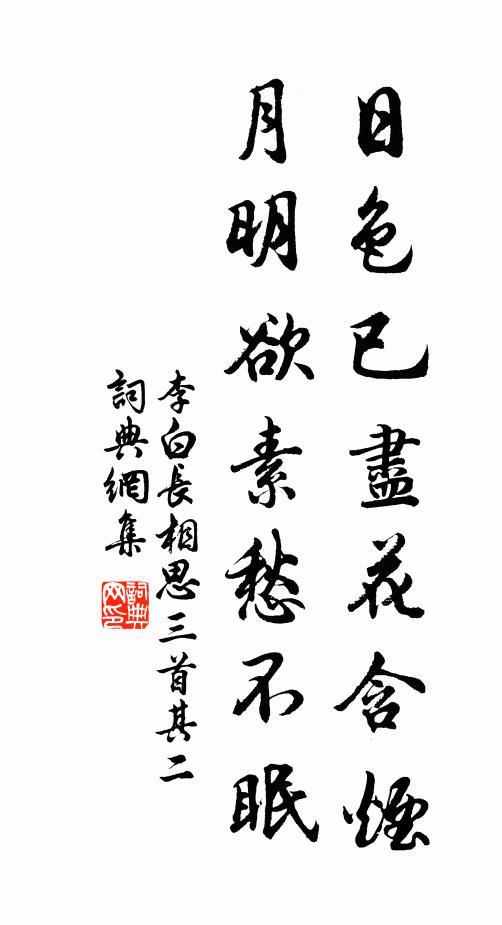 日色已盡花含煙
月明欲素愁不眠
李白長相思三首其二
詞典網集
詞典网印